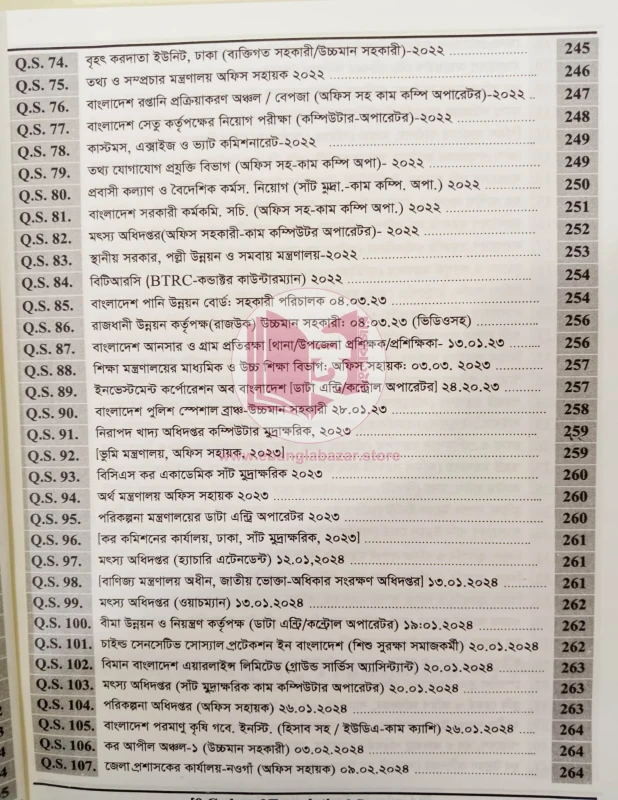 Q.S. 74. বৃহৎ করদাতা ইউনিট, ঢাকা (ব্যক্তিগত সহকারী/উচ্চমান সহকারী)-২০২২ .................... 245
Q.S. 75. তথ্য ও সম্প্রচার মন্ত্রণালয় অফিস সহায়ক ২০২২ .................... 246
Q.S. 76. বাংলাদেশ রপ্তানি প্রক্রিয়াকরণ অঞ্চল / বেপজা (অফিস সহ কাম কম্পি অপারেটর)-২০২২ .. 247
Q.S. 77. বাংলাদেশ সেতু কর্তৃপক্ষের নিয়োগ পরীক্ষা (কম্পিউটার-অপারেটর)-২০২২ .................... 248
Q.S. 78. কাস্টমস, এক্সাইজ ও ভ্যাট কমিশনারেট-২০২২ .................... 249
Q.S. 79. তথ্য যোগাযোগ প্রযুক্তি বিভাগ (অফিস সহ-কাম কম্পি অপা)- ২০২২ .................... 249
Q.S. 80. প্রবাসী কল্যাণ ও বৈদেশিক কর্মস. নিয়োগ (সাঁট মুদ্রা.-কাম কম্পি. অপা.) ২০২২ .................... 250
Q.S. 81. বাংলাদেশ সরকারী কর্মকমি. সচি. (অফিস সহ-কাম কম্পি অপা.) ২০২২ .................... 251
Q.S. 82. মৎস্য অধিদপ্তর(অফিস সহকারী-কাম কম্পিউটর অপারেটর)- ২০২২ .................... 252
Q.S. 83. স্থানীয় সরকার, পল্লী উন্নয়ন ও সমবায় মন্ত্রণালয়-২০২২ .................... 253
Q.S. 84. বিটিআরসি (BTRC-কন্ডাক্টর কাউন্টারম্যান) ২০২২ .................... 254
Q.S. 85. বাংলাদেশ পানি উন্নয়ন বোর্ড: সহকারী পরিচালক ০৪.০৩.২৩ .................... 254
Q.S. 86. রাজধানী উন্নয়ন কর্তৃপক্ষ(রাজউক) উচ্চমান সহকারী: ০৪.০৩.২৩ (ভিডিওসহ) .................... 256
Q.S. 87. বাংলাদেশ আনসার ও গ্রাম প্রতিরক্ষা [থানা/উপজেলা প্রশিক্ষক/প্রশিক্ষিকা- ১৩.০১.২৩ .................... 256
Q.S. 88. শিক্ষা মন্ত্রণালয়ের মাধ্যমিক ও উচ্চ শিক্ষা বিভাগ: অফিস সহায়ক: ০৩.০৩. ২০২৩ .................... 257
Q.S. 89. ইনভেস্টমেন্ট কর্পোরেশন অব বাংলাদেশ [ডাটা এন্ট্রি/কন্ট্রোল অপারেটর] ২৪.২০.২৩ .................... 257
Q.S. 90. বাংলাদেশ পুলিশ স্পেশাল ব্রাঞ্চ-উচ্চমান সহকারী ২৮.০১.২৩ .................... 258
Q.S. 91. নিরাপদ খাদ্য অধিদপ্তর কম্পিউটার মুদ্রাক্ষরিক, ২০২৩ .................... 259
Q.S. 92. [ভূমি মন্ত্রণালয়, অফিস সহায়ক, ২০২৩] .................... 259
www.ebanglabazar.store
Q.S. 93. বিসিএস কর একাডেমিক সাঁট মুদ্রাক্ষরিক ২০২৩ .................... 260
Q.S. 94. অর্থ মন্ত্রণালয় অফিস সহায়ক ২০২৩ .................... 260
Q.S. 95. পরিকল্পনা মন্ত্রণালয়ের ডাটা এন্ট্রি অপারেটর ২০২৩ .................... 260
Q.S. 96. [কর কমিশনের কার্যালয়, ঢাকা, সাঁট মুদ্রাক্ষরিক, ২০২৩] .................... 261
Q.S. 97. মৎস্য অধিদপ্তর (হ্যাচারি এটেনডেন্ট) ১২.০১,২০২৪ .................... 261
Q.S. 98. [বাণিজ্য মন্ত্রণালয় অধীন, জাতীয় ভোক্তা-অধিকার সংরক্ষণ অধিদপ্তর] ১৩.০১.২০২৪ .................... 261
Q.S. 99. মৎস্য অধিদপ্তর (ওয়াচম্যান) ১৩.০১.২০২৪ .................... 262
Q.S. 100. বীমা উন্নয়ন ও নিয়ন্ত্রণ কর্তৃপক্ষ (ডাটা এন্ট্রি/কন্ট্রোল অপারেটর) ১৯:০১.২০২৪ .................... 262
Q.S. 101. চাইল্ড সেনসেটিভ সোস্যাল প্রটেকশন ইন বাংলাদেশ (শিশু সুরক্ষা সমাজকর্মী) ২০.০১.২০২৪ 262
Q.S. 102. বিমান বাংলাদেশ এয়ারলাইন্স লিমিটেড (গ্রাউন্ড সার্ভিস অ্যাসিস্ট্যান্ট) ২০.০১.২০২৪ .......... 263
Q.S. 103. মৎস্য অধিদপ্তর (সাঁট মুদ্রাক্ষরিক কাম কম্পিউটার অপারেটর) ২০.০১.২০২৪ .................... 263
Q.S. 104. পরিকল্পনা অধিদপ্তর (অফিস সহায়ক) ২৬.০১.২০২৪ .................... 263
Q.S. 105. বাংলাদেশ পরমাণু কৃষি গবে. ইনস্টি. (হিসাব সহ / ইউডিএ-কাম ক্যাশি) ২৬.০১.২০২৪ ..... 264
Q.S. 106. কর আপীল অঞ্চল-১ (উচ্চমান সহকারী) ০৩.০২.২০২৪ .................... 264
Q.S. 107. জেলা প্রশাসকের কার্যালয়-নওগাঁ (অফিস সহায়ক) ০৯.০২.২০২৪ .................... 264